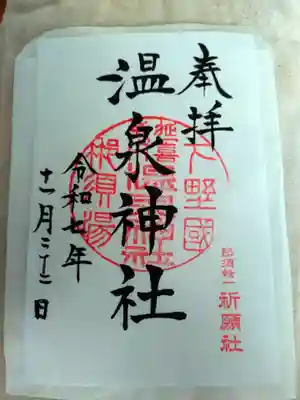 奉拝
下野國
延喜式内
温泉神社
那須湯
那須餘一
祈願社
令和七年
十一月二十二日